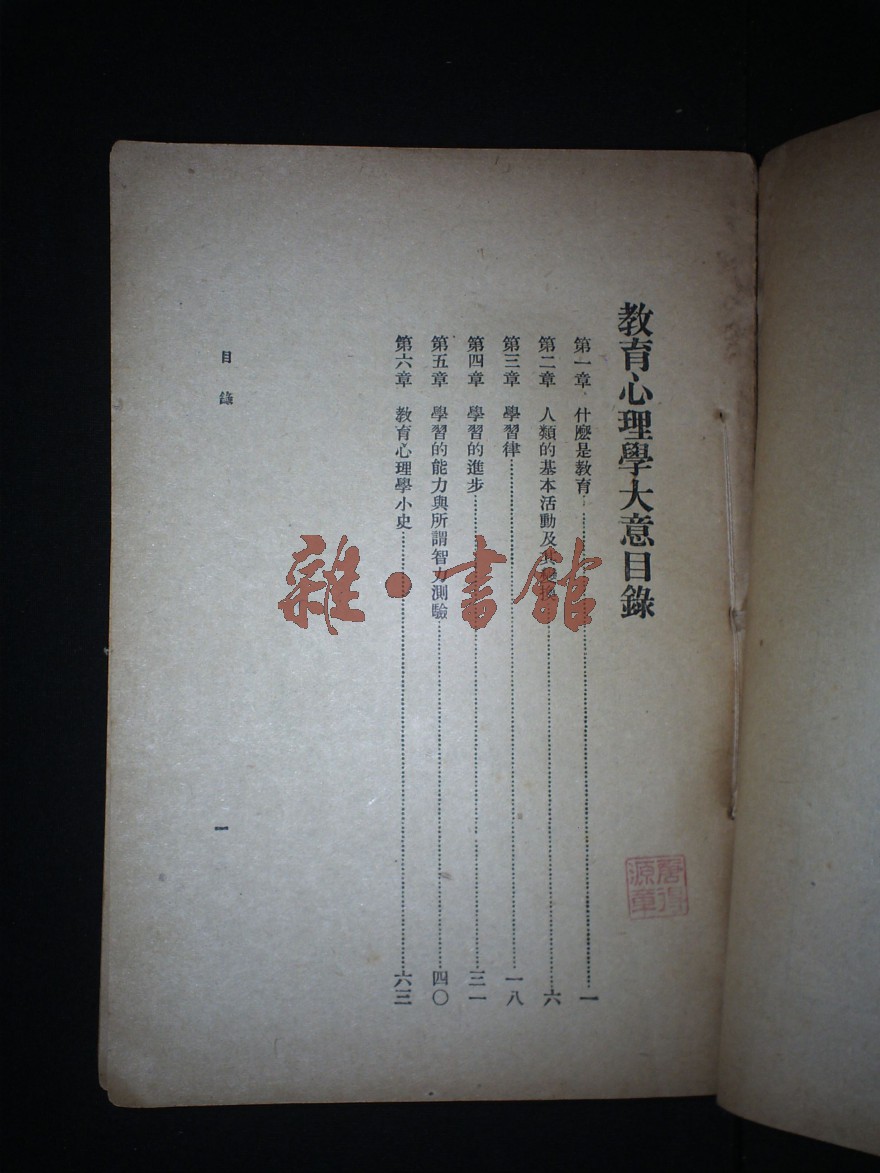 教育心理學大意目錄
第一章 什麼是教育……一
第二章 人類的基本活動及其……六
第三章 學習律……一八
第四章 學習的進步……三一
第五章 學習的能力與所謂智力測驗……四〇
第六章 教育心理學小史……六三
目錄
一
雜·書館
源章